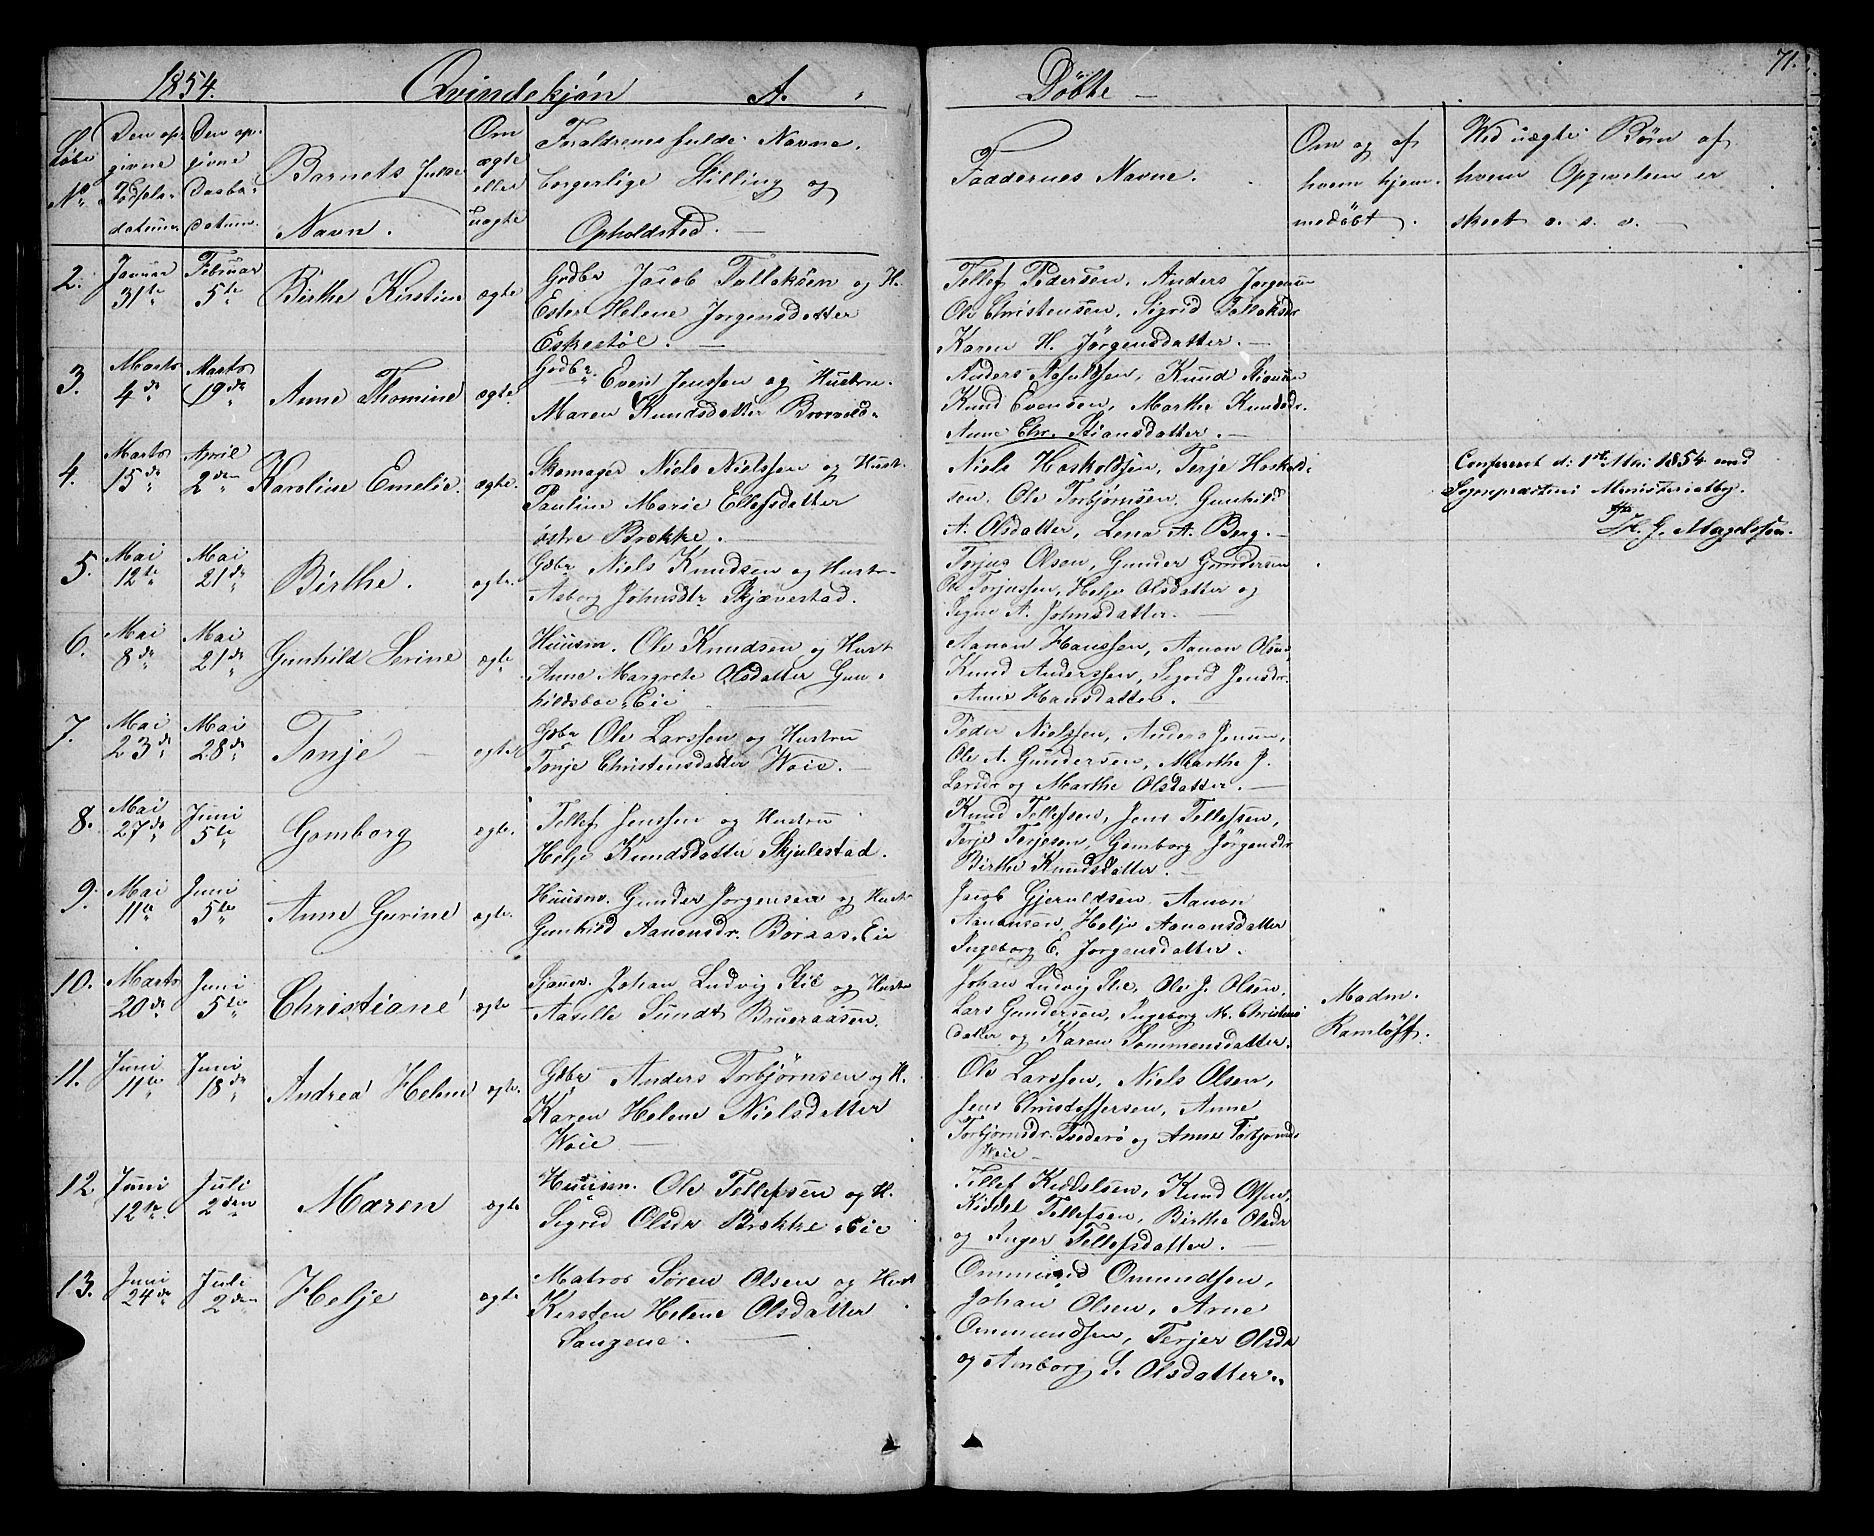 71.
1854. Qvindekjøn A. Døbte —
Løbe No
Den opgivne Fødselsdatum.
Den opgivne Daabsdatum.
Barnets fulde Navn.
Om ægte eller uægte
Forældrenes fulde Navne, borgerlige Stilling og Opholdsted. —
Faddernes Navne.
Om og af hvem hjemmedøbt.
Wed uægte Børn af hvem Opgivelsen er skeet o. s. v. —
2. Januar 31te Februar 5te Birthe Kirstine ægte
Gdbr Jacob Tolleksen og H.
Ester Helene Jorgensdatter
Eskestøl. —
Tellef Pedersen, Anders Jorgensen
Ole Christensen, Sigrid Folleksdr
Karen H. Jörgensdatter. —
3. Marts 4de Marts 19de Anne Thomine ægte
Gdbr. Even Jenssen og Hustru
Maren Knudsdatter
Anders Knud
Knud Evensen, Marthe Knudsdr.
Anne Chr. Stiansdatter. —
4. Marts 15de April 2den Karoline Emelie. ægte.
Skomager Niels Nielssen og Hust.
Pauline Marie Ellefsdatter
östre Brekke. —
Niels Hoskoldsen, Terje Hoskold-
sen. Ole Torbjørnsen, Gunhild
A. Olsdatter, Lena A. Berg. —
Confereret d: 1ste Mai 1854 med
Sognepræstens Ministerialbg.
H. J. Magelssen.
5. Mai 12te Mai 21de Birthe. ægte.
Gdbr Niels Knudsen og Hustr-
Aaborg Johnsdtr Skjævestad.
Terjus Olsen, Gunder Gundersen
Ole Torjussen, Helje Olsdatter og
Signe A. Johnsdatter. —
6. Mai 8de Mai 21de Gunhild Serine ægte
Huusm. Ole Knudsen og Hust
Anne Margrete Olsdatter Gun-
hildsboe Eie
Aanon Hanssen, Aanon Olsen,
Knud Anderssen, Sigrid Jensdr.
Anne Hansdatter. —
7. Mai 23de Mai 28de Tonje — ægte
Gdbr Ole Larssen og Hustru
Tonje Christensdatter Woie. —
Peder Nielssen, Anders Jensen,
Ole A. Gundersen, Marthe J.
Larsdr og Marthe Olsdatter. —
8. Mai 27de Juni 5te Gomborg ægte.
Tellef Jenssen og Hustru
Helje Knudsdatter Skjulestad.
Knud Tellefsen, Jens Tellefsen,
Terje Terjesen, Gomborg Jörgensdr
Birthe Knudsdatter. —
9. Mai 11te Juni 5te Anne Gurine ægte.
Huusm. Gunder Jorgensen og Hustr
Gunhild Aanonsdr. Boraas Eie
Jacob Gjeruldsen, Aanon
Aanonsen, Helje Aanonsdatter
Ingeborg E. Jorgensdatter.
10. Marts 20de Juni 5te Christiane ægte
Johan Ludvig Stie og Hustr
Aaselle Sundt
Johan Ludvig Stie, Ole J. Olsen,
Lars Gundersen, Ingeborg M. Christens
datter og Karen Tommensdatter.
Madm.
Ramløff.
11. Juni 11te Juni 18de Andrea Helene ægte.
Gdbr Anders Torbjørnsen og H.
Karen Helene Nielsdatter
Woie —
Ole Larssen, Niels Olsen,
Jens Christoffersen, Anne
Torbjornsdr. Tvederø og Anne Torbjornsd.
Woie —
12. Juni 12te Juli 2den Maren ægte
Huusm. Ole Tellefsen og H.
Sigrid Olsdr Brekke Eie
Tellef Kiddelsen, Knud Olsen,
Kiddel Tellefsen, Birthe Olsdr
og Inger Tellefsdatter. —
13. Juni 24de Juli 2den Helje ægte
Matros Søren Olsen og Hust
Kirsten Helene Olsdatter
Songene. —
Ommund Omundsen,
Johan Olsen, Arne
Ommundsen, Terjer Olsdr
og Amborg S. Olsdatter.